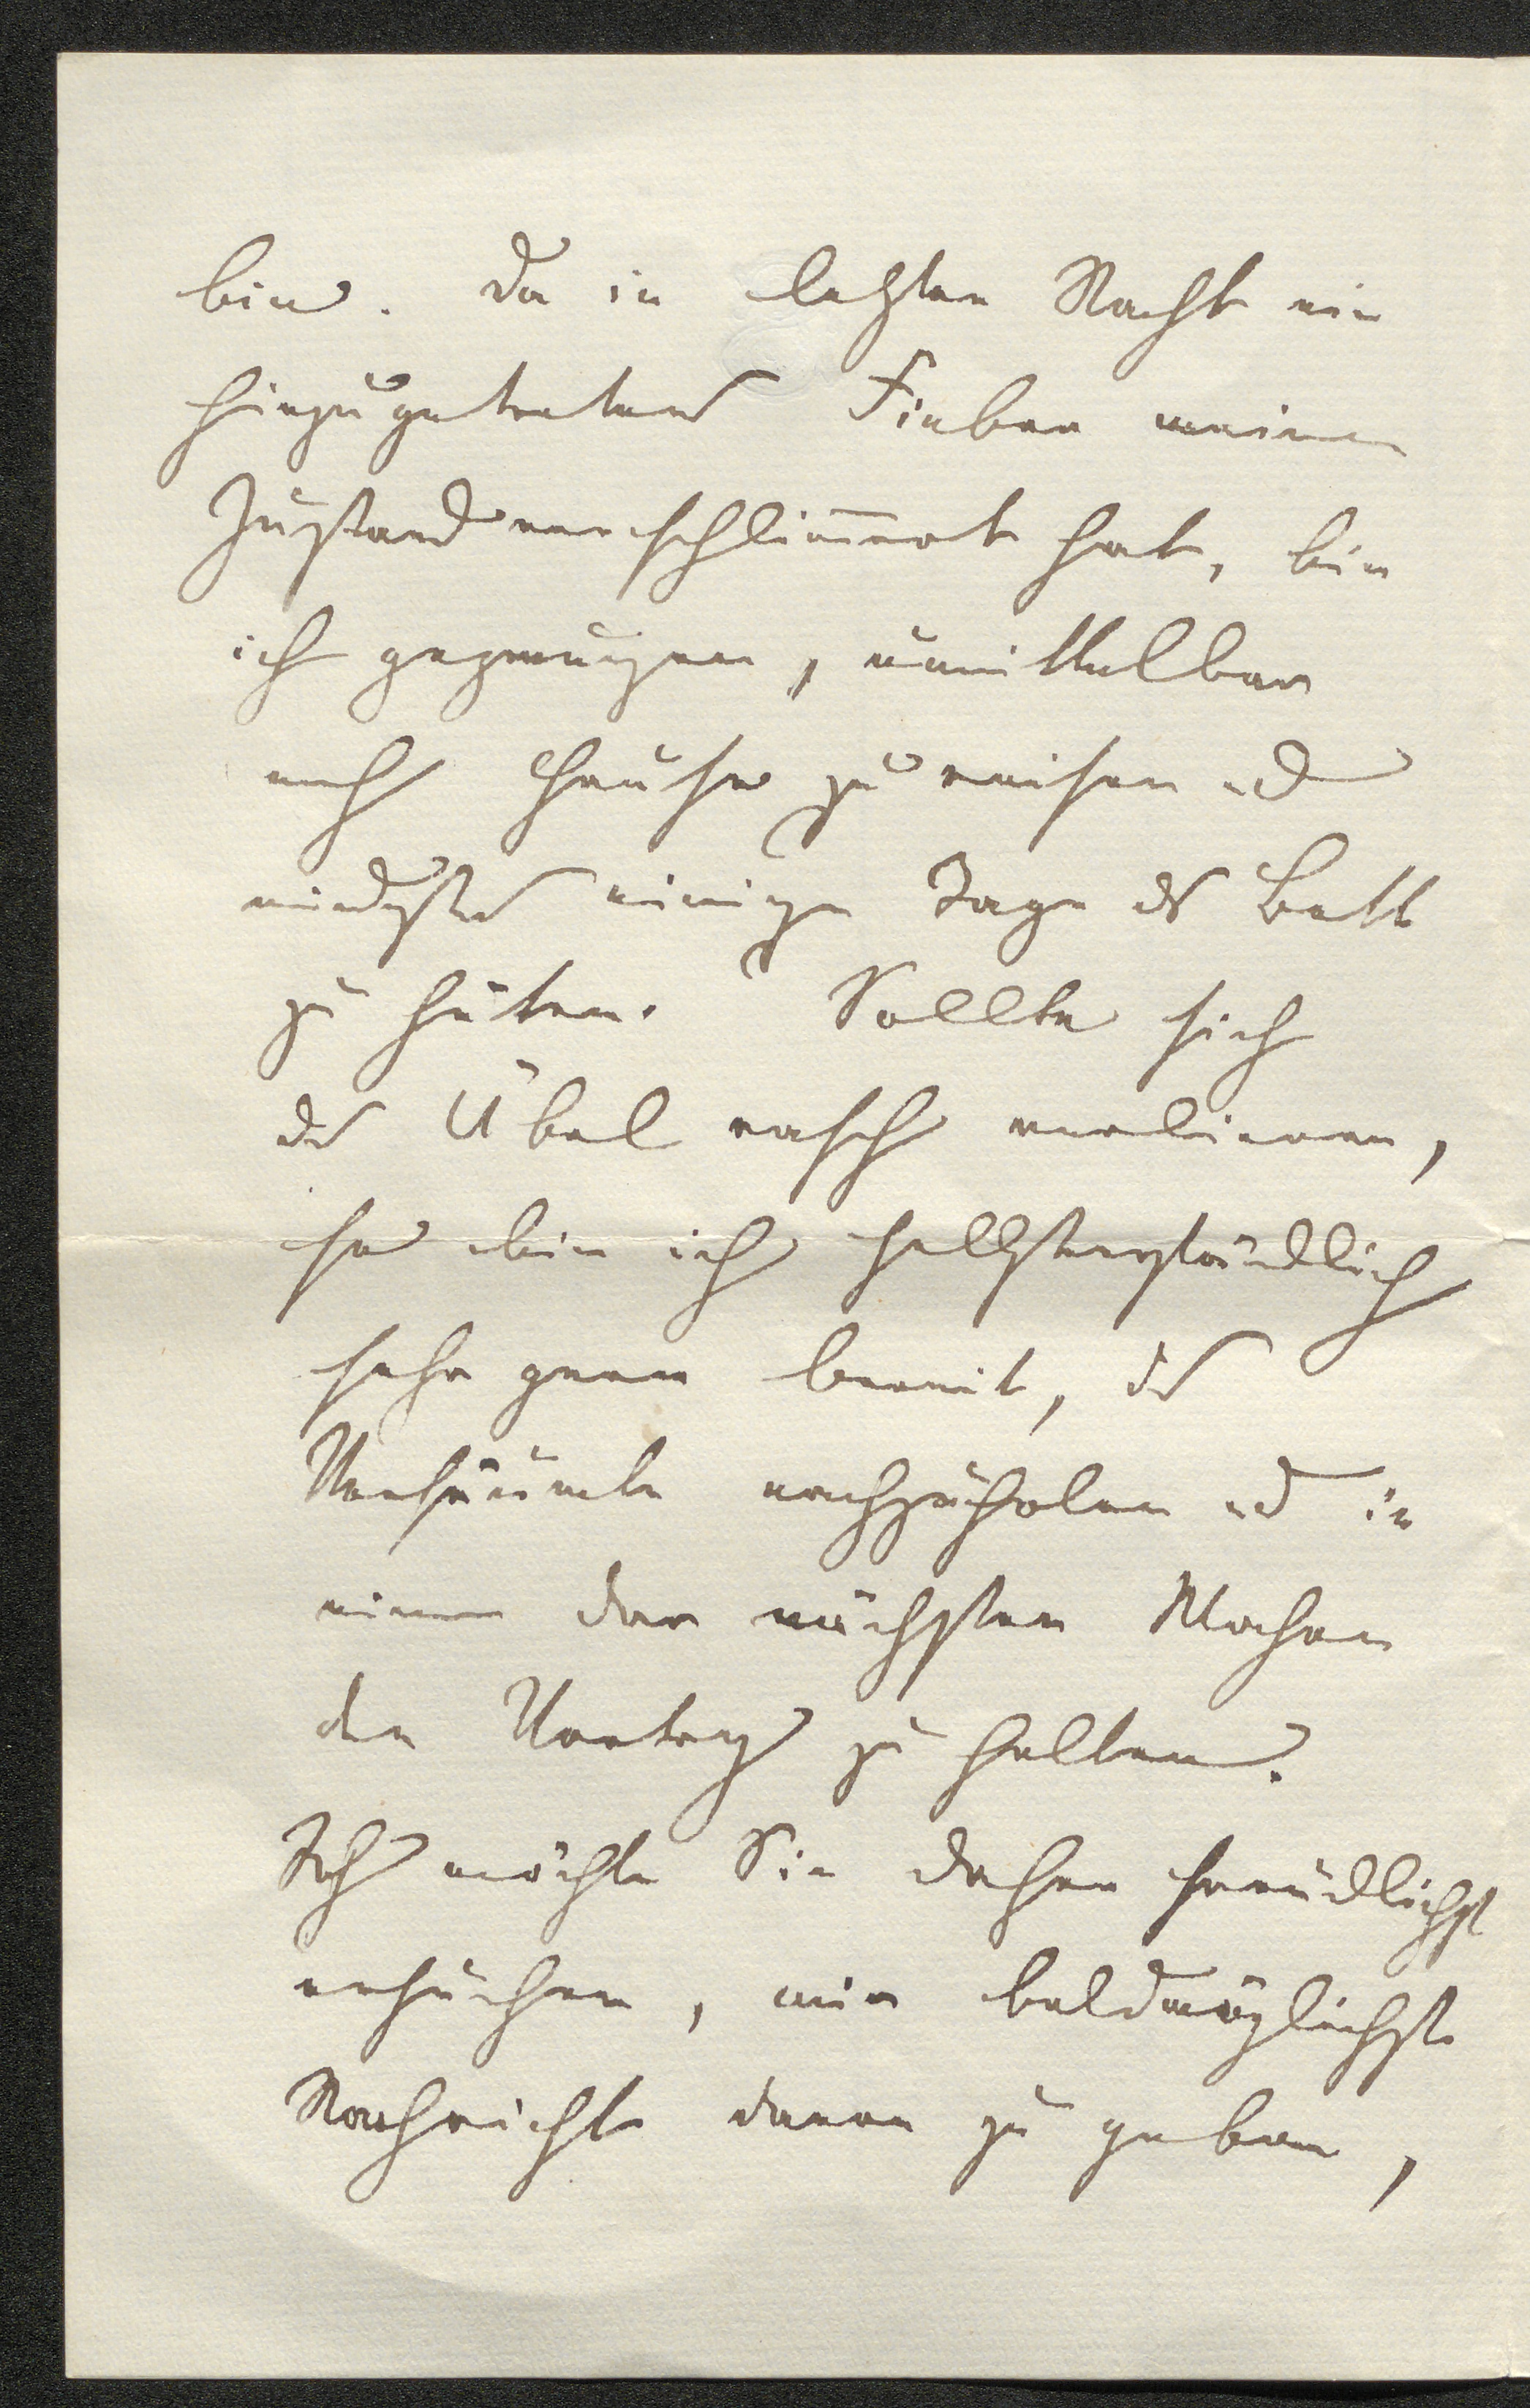 bin. Da in letzter Nacht ein
hinzugetretenes Fieber meinen
Zustand verschlim̅ert hat, bin
ich gezwungen, unmittelbar
nach Hause zu reisen und
mindestens einige Tage das Bett
zu hüten. Sollte sich
das Übel rasch verlieren,
so bin ich selbstverständlich
sehr gern bereit, das
Versäumte nachzuholen und in
einer der nächsten Wochen
den Vortrag zu halten.
Ich möchte Sie daher freundlichst
ersuchen, mir baldmöglichst
Nachricht davon zu geben,